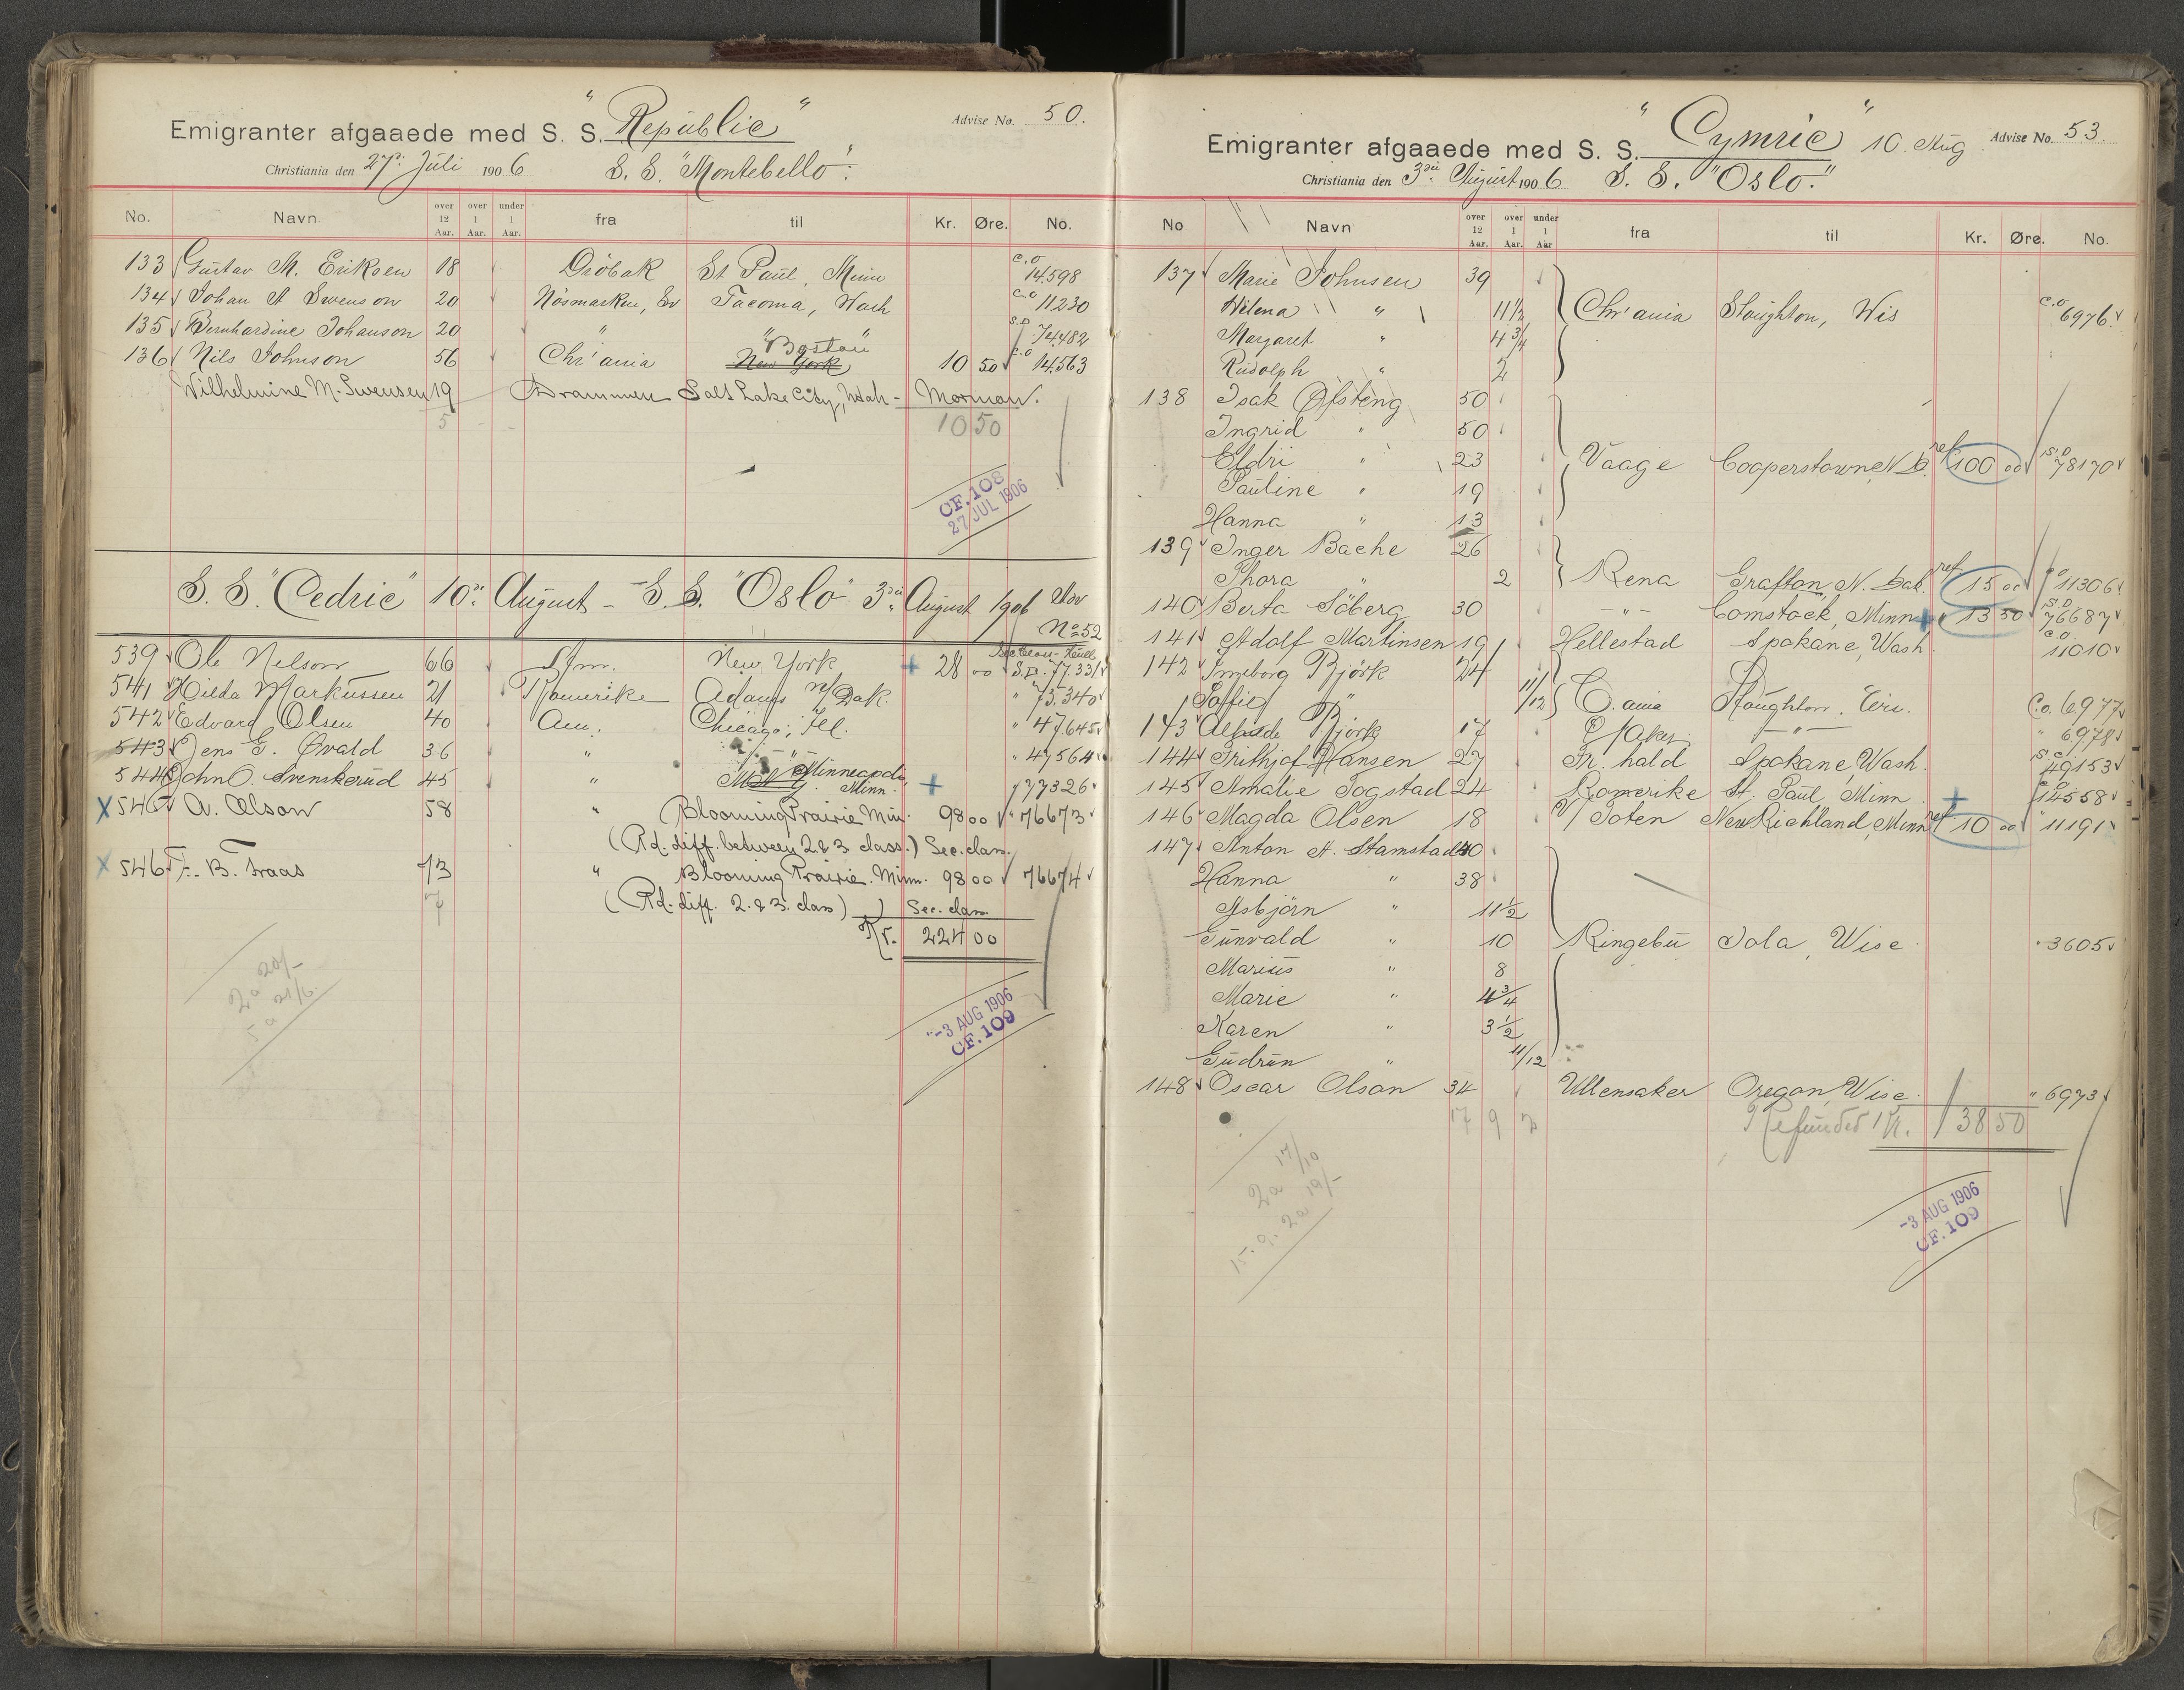 Emigranter afgaaede med S. S. "Republic" Advise No. 50.
Christiania den 27de Juli 1906 S. S. "Montebello".
No. Navn. over 12 Aar. over 1 Aar. under 1 Aar. fra til Kr. Øre. No.
133 Gustav M. Eriksen 18 Dröbak St. Paul, Minn c.o 14598
134 Johan A Swenson 20 Nösmarken, Sv Tacoma, Wash c.o 11230
135 Bernhardine Johanson 20 " " " S.D 74482
136 Nils Johnson 56 Chr'ania Boston New York 10 50 c.o 14563
Wilhelmine M. Swensen 19 Drammen Salt Lake City, Utah - Mormon.
5 - - 10 50
CF. 108
27 JUL 1906
S. S. "Cedric" 10de August - S. S. "Oslo" 3die August 1906 Adv
No 52
539 Ole Nelson 66 New York + 28 00 S.D. 77331
541 Hilda Markussen 21 Romerike Adams N/Dak. " 75.340
542 Edvard Olsen 40 Am. Chicago, Ill. " 47.645
543 Jens G. Øvald 36 " - " - " 47564
544 John O. Svenskerud 45 " Minneapolis Minn. + 177326
x 545 A. Olson 58 " Blooming Prairie Min. 98 00 " 76673
(Ad. diff. between 2 & 3 class.) Sec. class.
x 546 F. B. Traas 73 " Blooming Prairie. Minn. 98 00 76674
7 (Ad. diff. 2. & 3. class) Sec. class.
Kr. 224 00
2a 20/-
5 a 21/6.
-3 AUG 1906
CF. 109
Emigranter afgaaede med S. S. "Cymric" 10 Aug Advise No. 53.
Christiania den 3die August 1906 S. S. "Oslo."
No Navn over 12 Aar. over 1 Aar. under 1 Aar fra til Kr. Øre. No.
137 Marie Johnsen 39
Wilena " 11½ Chr'ania Stoughton, Wis c.o 6976
Margaret " 4¾
Rudolph " 2
138 Isak Øfsteng 50
Ingrid " 50
Eldri " 23 Vaage Cooperstown N.D. ref 100 00 S.D 78170
Pauline " 19
Hanna " 13
139 Inger Bache 26
Thora " 2 Rena Grafton, N. Dak. ref 15 00 c.o 11306
140 Berta Söberg 30 - " - Comstock, Minn + 13 50 S.D 76687
141 Adolf Martinsen 19 Hellestad Spokane, Wash c.o. 11010
142 Ingeborg Bjørk 24
Soffie " 11/12 C.ania Stoughton. c.o. 6977
143 Bjørk 17 - " - " 6978
144 Frithjof Hansen 27 Fr. hald Spokane, Wash. 49153
145 Amalie Togstad 24 Romerike St. Paul Minn + 14558
146 Magda Olsen 18 V/ Toten New Richland, Minn ref 10 00 " 11191
147 Anton A. Stamstad 40
Hanna " 38
Asbjörn " 11½
Gunvald " 10 Ringebu Iola, Wisc " 3605
Marius " 8
Marie " 4¾
Karen " 3½
Gudrun " 11/12
148 Oscar Olson 34 Ullensaker Oregon, Wisc. " 6973
17 9 2 Refunded Kr. 138 50
17/10
2a 19/-
15. 9. 2a
-3 AUG 1906
CF. 109